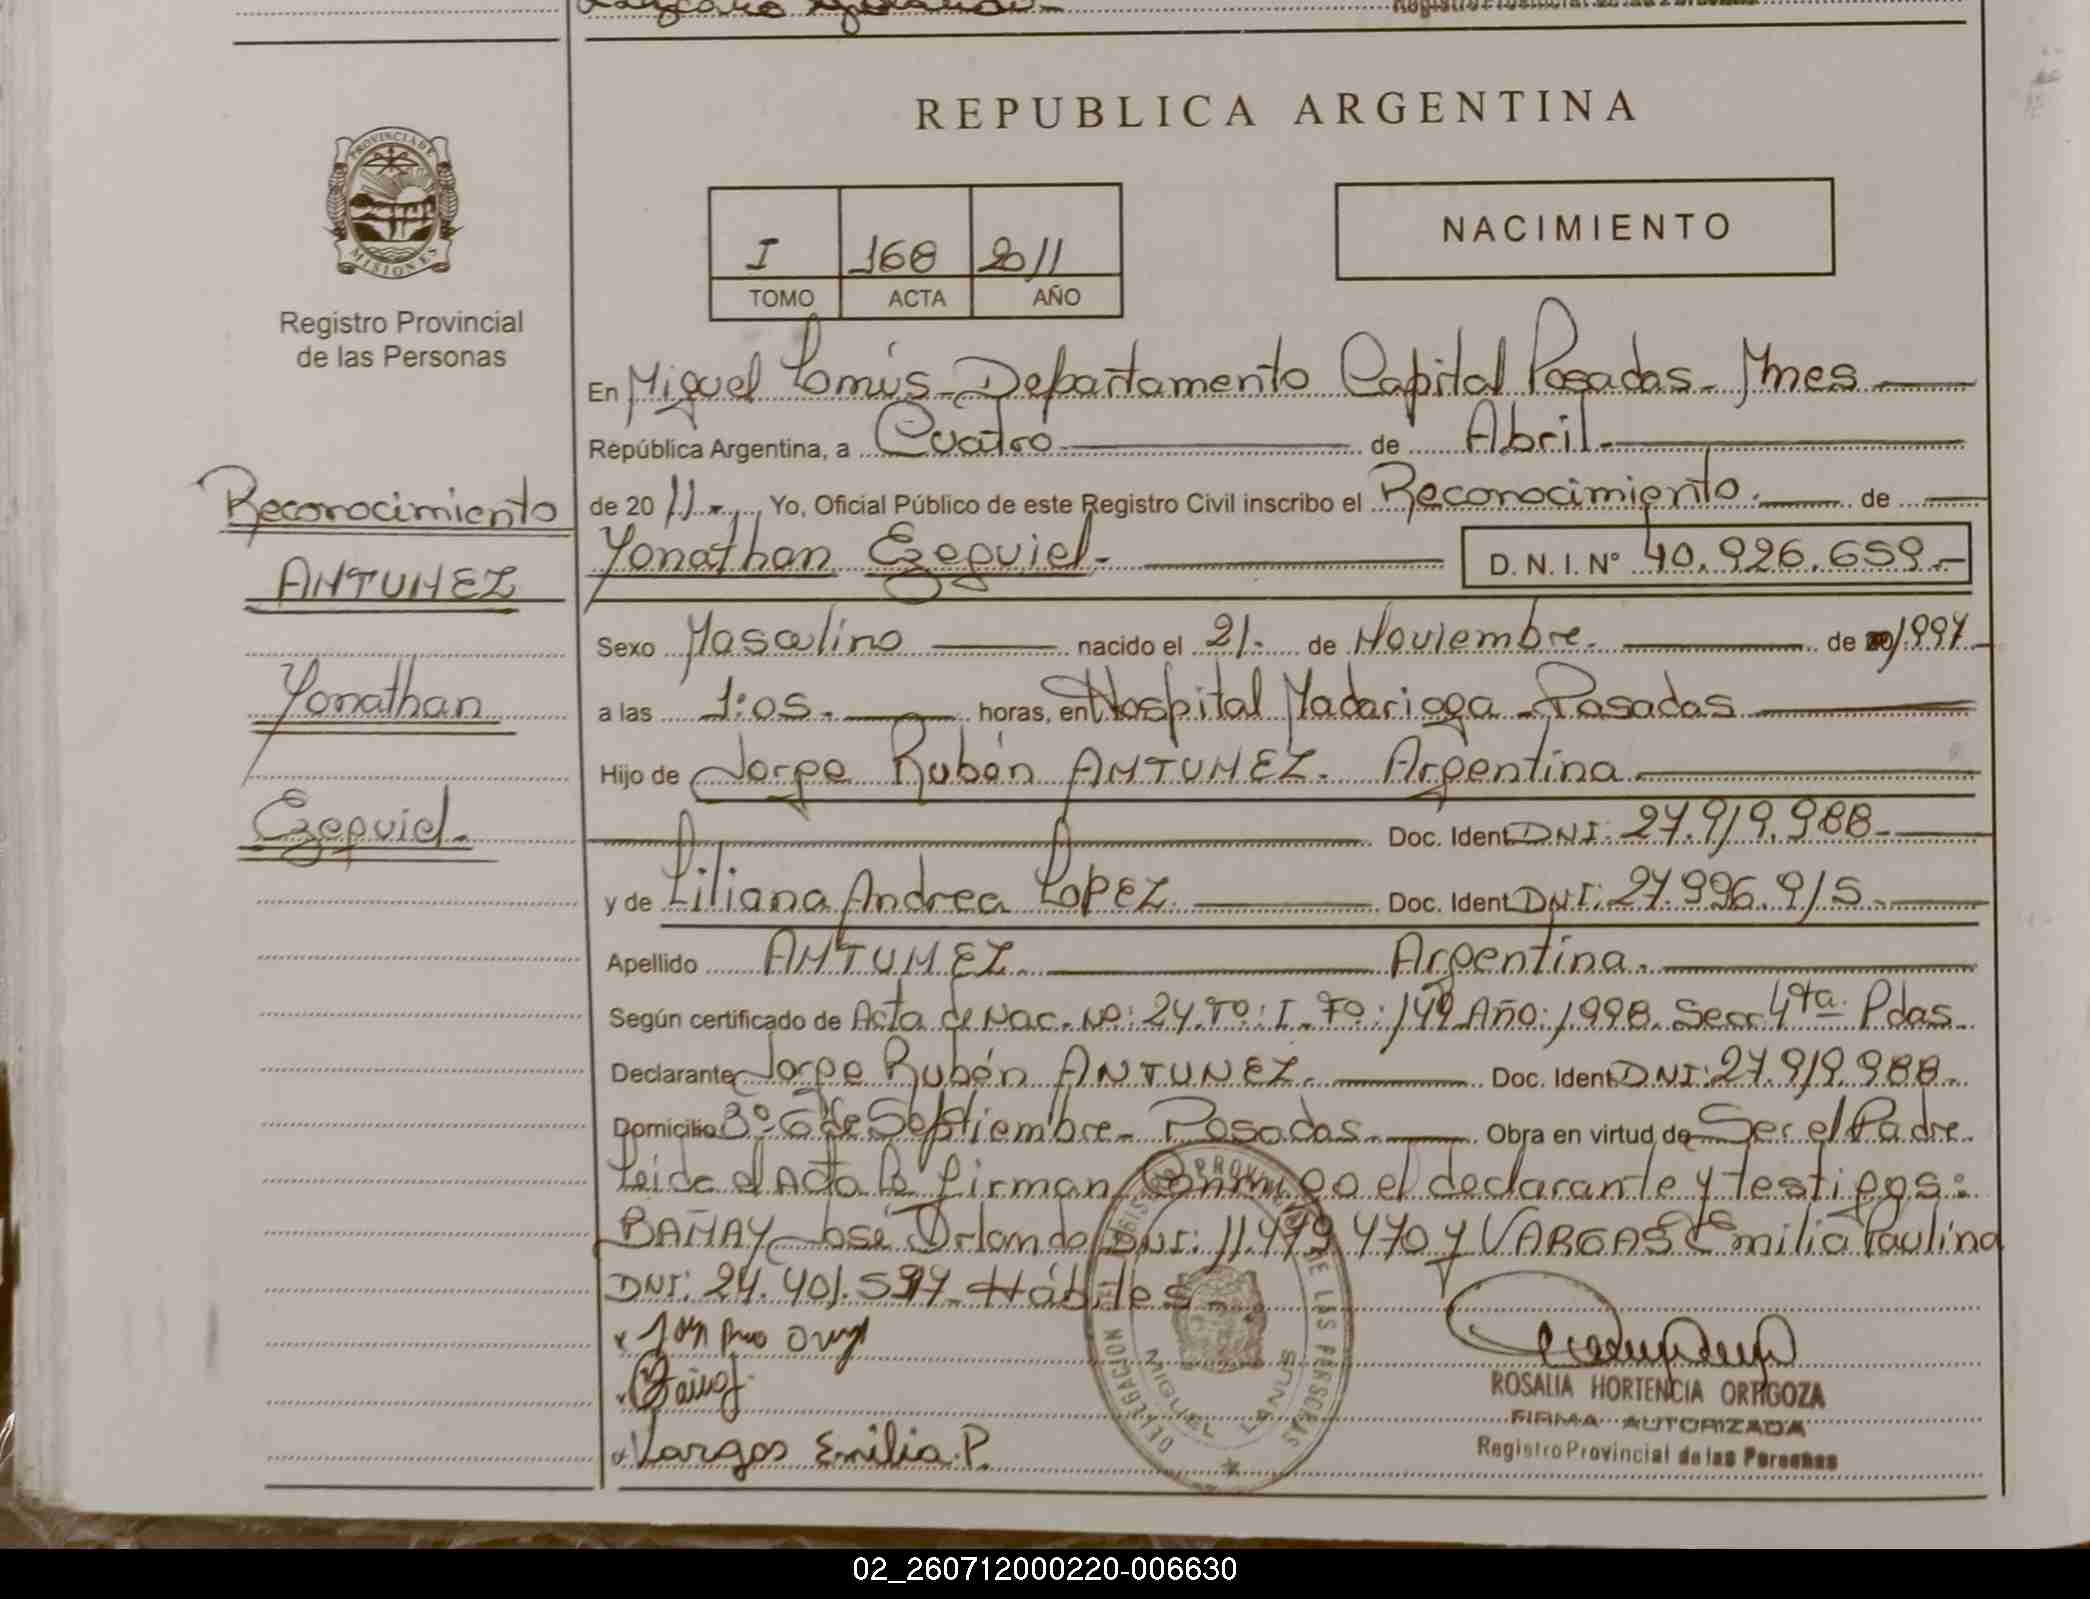 REPUBLICA ARGENTINA
PROVINCIA DE
MISIONES
Registro Provincial
de las Personas
I 168 2011
TOMO ACTA AÑO
NACIMIENTO
En Miguel Lanús - Departamento Capital Posadas - Mnes
República Argentina, a Cuatro de Abril.-
de 2011.- Yo, Oficial Público de este Registro Civil inscribo el Reconocimiento. de
Yonathan Ezequiel.- D. N. I. Nº 40.926.659.-
Sexo Masculino nacido el 21.- de Noviembre. de 1997.-
a las 1:05.- horas, en Hospital Madariaga - Posadas
Hijo de Jorge Rubén ANTUNEZ. Argentina.
Doc. Ident. DNI: 27.919.988.-
y de Liliana Andrea LOPEZ. Doc. Ident. DNI: 27.996.915.-
Apellido ANTUNEZ. Argentina.
Según certificado de Acta de Nac. Nº: 24. Tº: I. Fº: 149 Año: 1998. Secc 4ta. Pdas.
Declarante Jorge Rubén ANTUNEZ. Doc. Ident. DNI: 27.919.988.-
Domicilio Bº 6 de Septiembre - Posadas. Obra en virtud de Ser el Padre.
Leida el Acta la firman Conmigo el declarante y testigos:
José Orlando DNI: 11.479.470 y VARGAS Emilia Paulina
DNI: 24.401.597. Hábiles
Vargas Emilia. P.
Reconocimiento
ANTUNEZ
Yonathan
Ezequiel.-
DELEGACION
MIGUEL LANUS
DE LAS PERSONAS
ROSALIA HORTENCIA ORTIGOZA
FIRMA AUTORIZADA
Registro Provincial de las Personas
02_260712000220-006630